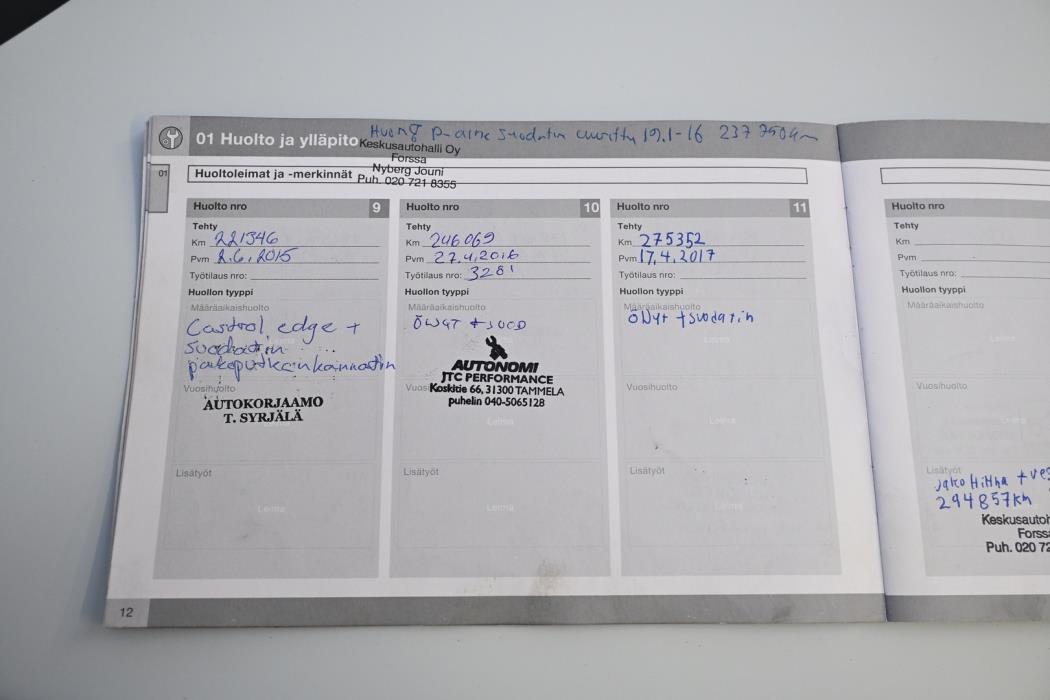 01 Huolto ja ylläpito
suodatin 19.1-16 237 750km
Keskusautohalli Oy
Forssa
Nyberg Jouni
Puh. 020 721 8355
01
Huoltoleimat ja -merkinnät
Huolto nro 9
Tehty
Km 221346
Pvm 2.6.2015
Työtilaus nro:
Huollon tyyppi
Määräaikaishuolto
Castrol edge +
suodatin
pakoputkenkannatin
Vuosihuolto
Leima
AUTOKORJAAMO
T. SYRJÄLÄ
Lisätyöt
Leima
Huolto nro 10
Tehty
Km 246069
Pvm 27.4.2016
Työtilaus nro: 3281
Huollon tyyppi
Määräaikaishuolto
ÖLJYT + SUOD
AUTONOMI
JTC PERFORMANCE
Koskitie 66, 31300 TAMMELA
puhelin 040-5065128
Leima
Lisätyöt
Leima
Huolto nro 11
Tehty
Km 275352
Pvm 17.4.2017
Työtilaus nro:
Huollon tyyppi
Määräaikaishuolto
ÖLJYT + suodatin
Leima
Vuosihuolto
Leima
Lisätyöt
Leima
12
Huolto nro
Tehty
Km
Pvm
Työtilaus nro:
Huollon tyyppi
Määräaikaishuolto
Leima
Vuosihuolto
Leima
Lisätyöt
jako Hihna + ves
294857km
Keskusautoh
Forssa
Puh. 020 72